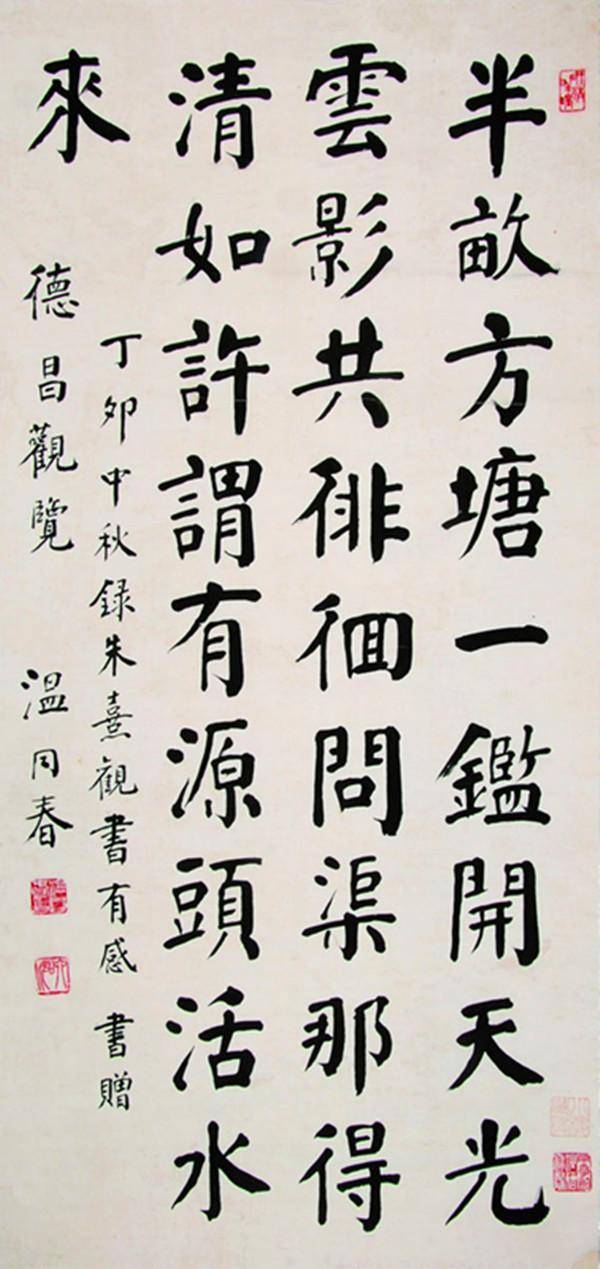 半畝方塘一鑑開天光
雲影共徘徊問渠那得
清如許謂有源頭活水
來
丁卯中秋録朱熹觀書有感 書贈
德昌觀覽 温同春